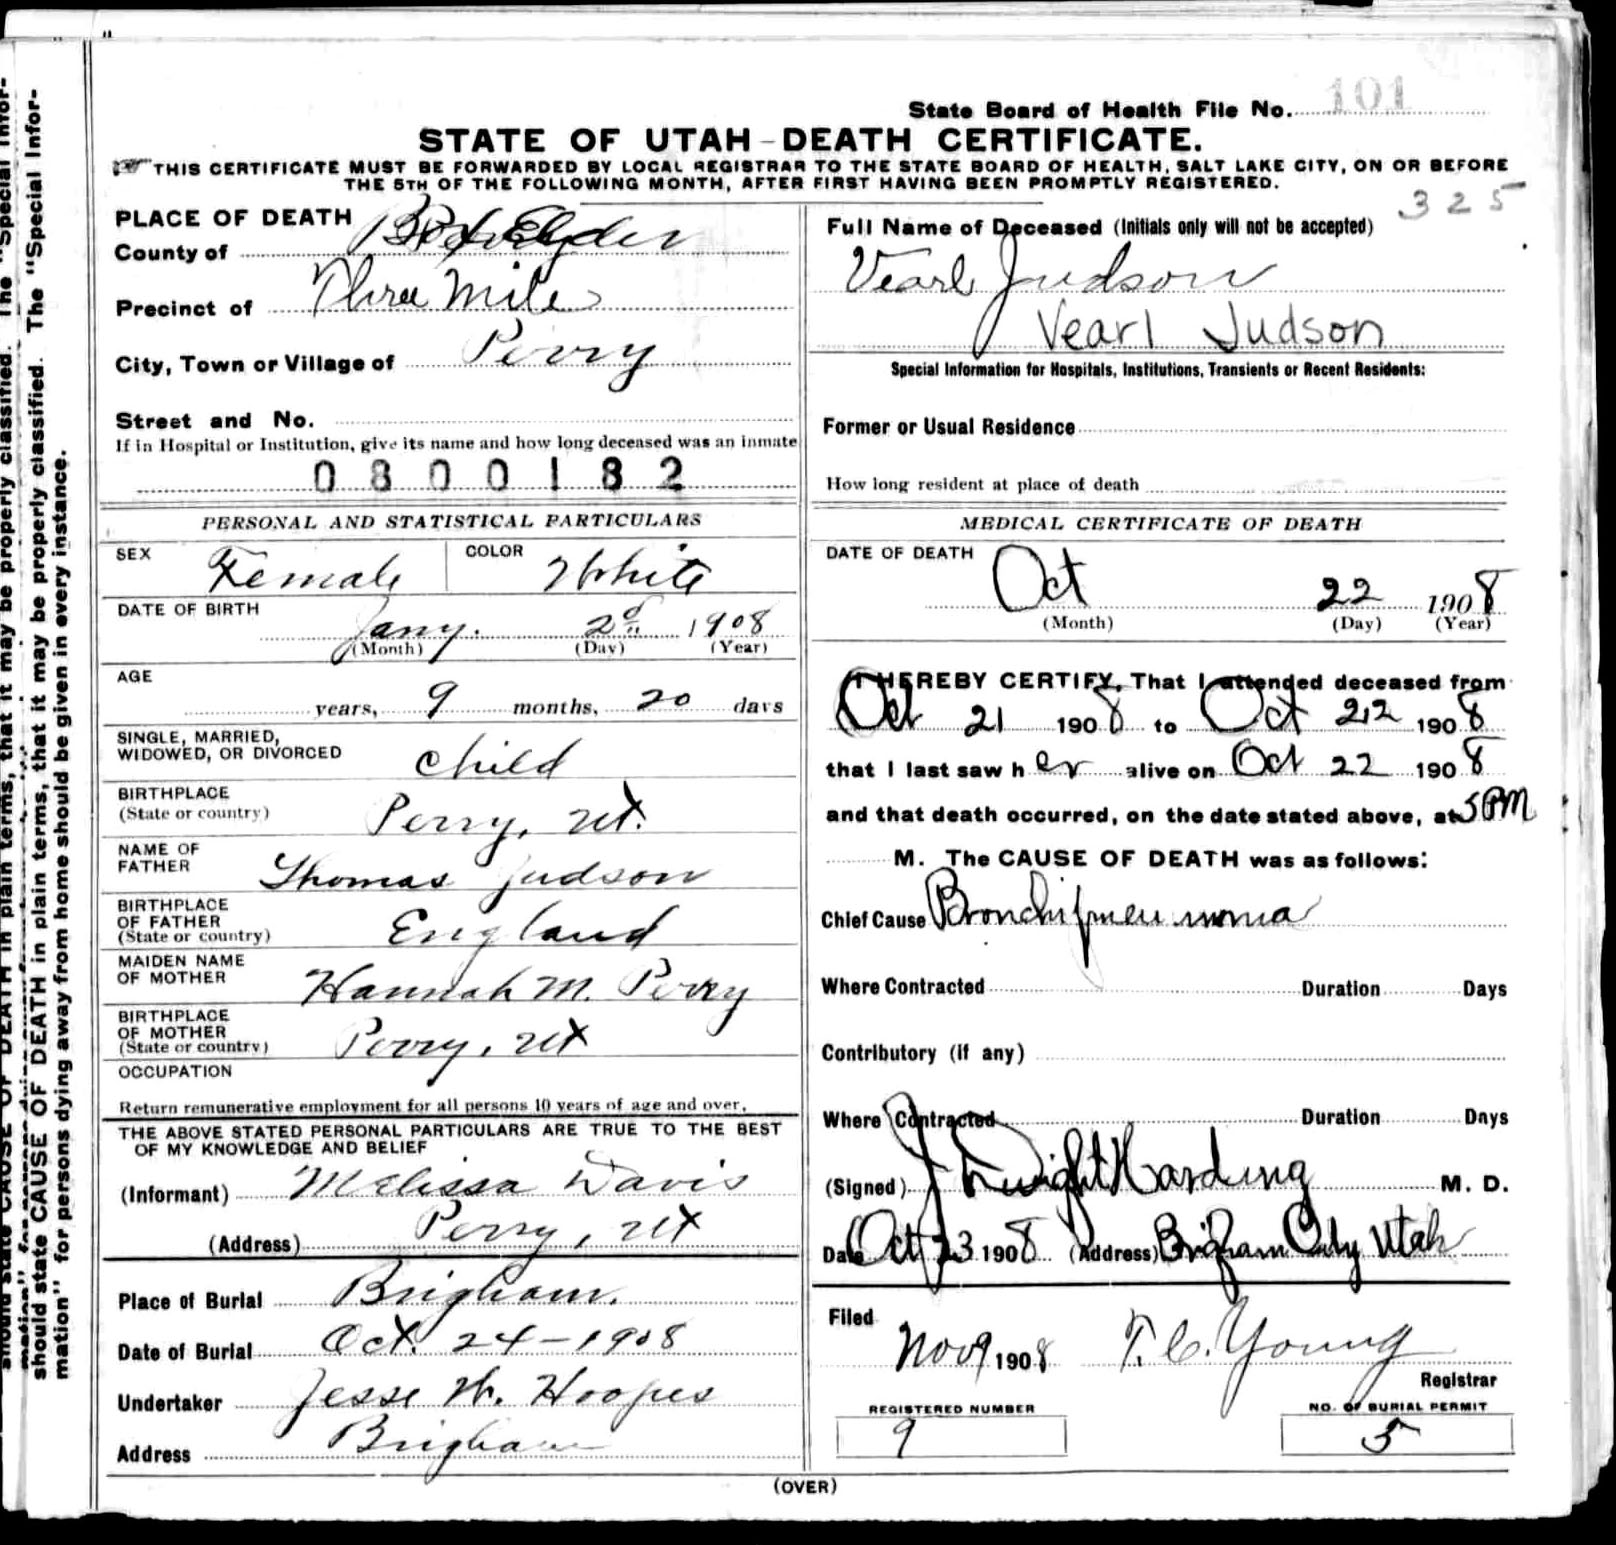 State Board of Health File No. 101
STATE OF UTAH-DEATH CERTIFICATE.
THIS CERTIFICATE MUST BE FORWARDED BY LOCAL REGISTRAR TO THE STATE BOARD OF HEALTH, SALT LAKE CITY, ON OR BEFORE
THE 5TH OF THE FOLLOWING MONTH, AFTER FIRST HAVING BEEN PROMPTLY REGISTERED.
325
PLACE OF DEATH
County of Box Elder
Precinct of Three Mile
City, Town or Village of Perry
Street and No.
If in Hospital or Institution, give its name and how long deceased was an inmate
0800182
PERSONAL AND STATISTICAL PARTICULARS
SEX Female COLOR White
DATE OF BIRTH Jany. 2d 1908
(Month) (Day) (Year)
AGE
years, 9 months, 20 days
SINGLE, MARRIED,
WIDOWED, OR DIVORCED child
BIRTHPLACE
(State or country) Perry, Ut.
NAME OF
FATHER Thomas Judson
BIRTHPLACE
OF FATHER
(State or country) England
MAIDEN NAME
OF MOTHER Hannah M. Perry
BIRTHPLACE
OF MOTHER
(State or country) Perry, Ut
OCCUPATION
Return remunerative employment for all persons 10 years of age and over.
THE ABOVE STATED PERSONAL PARTICULARS ARE TRUE TO THE BEST
OF MY KNOWLEDGE AND BELIEF
(Informant) Melissa Davis
(Address) Perry, Ut
Place of Burial Brigham.
Date of Burial Oct. 24-1908
Undertaker Jesse W. Hoopes
Address Brigham
Full Name of Deceased (Initials only will not be accepted)
Vearl Judson
Vearl Judson
Special Information for Hospitals, Institutions, Transients or Recent Residents:
Former or Usual Residence
How long resident at place of death
MEDICAL CERTIFICATE OF DEATH
DATE OF DEATH
Oct 22 1908
(Month) (Day) (Year)
I HEREBY CERTIFY, That I attended deceased from
Oct 21 1908 to Oct 22 1908
that I last saw her alive on Oct 22 1908
and that death occurred, on the date stated above, at 5 PM
M. The CAUSE OF DEATH was as follows:
Chief Cause Bronchipneumonia
Where Contracted Duration Days
Contributory (if any)
Where Contracted Duration Days
(Signed) J Dwight Harding M. D.
Date Oct 23 1908 (Address) Brigham City Utah
Filed
Nov 9 1908 T. C. Young
Registrar
REGISTERED NUMBER
9
NO. OF BURIAL PERMIT
5
(OVER)
should state CAUSE OF DEATH in plain terms, that it may be properly classified. The "Special Infor-
mation" for persons dying away from home should be given in every instance.